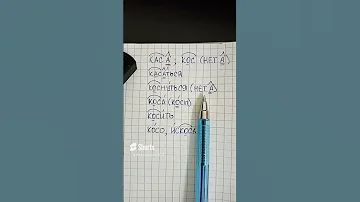 КАС А, КОС (НЕТ А)
КАСАТЬСЯ
КОСНУТЬСЯ (НЕТ А)
КОСА (КОСЫ)
КОСИТЬ
КОСО, ИСКОСА
Shorts